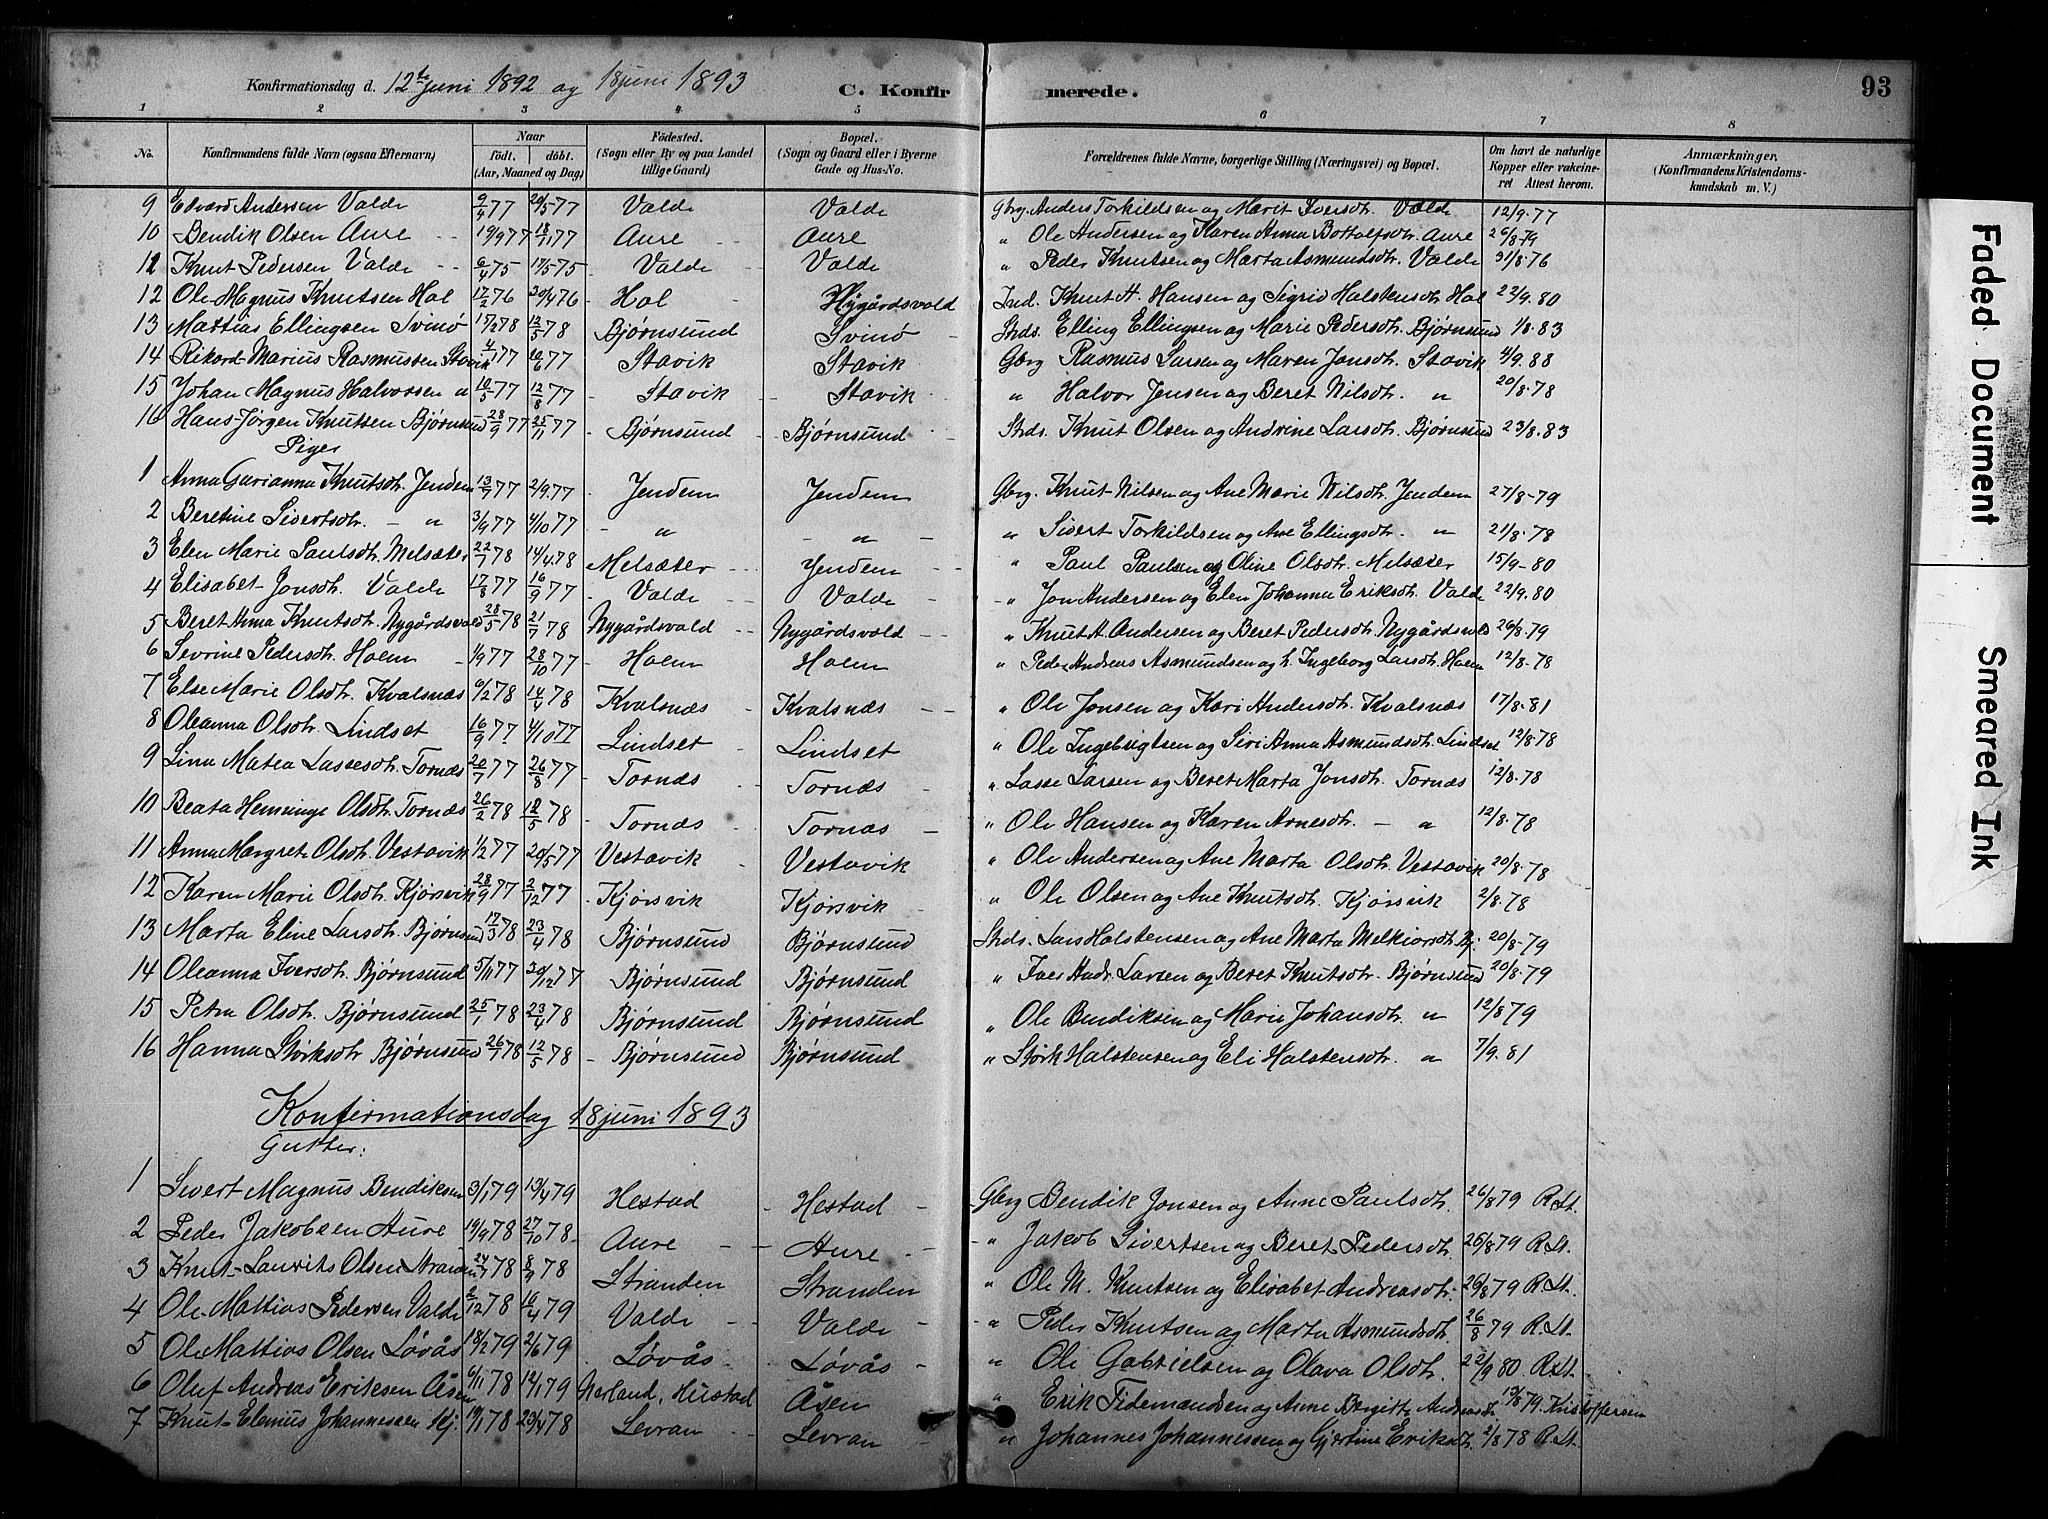 Konfirmationsdag d. 12te Juni 1892 og 18 juni 1893 C. Konfirmerede. 93
1 2 3 4 5 6 7 8
No. Konfirmandens fulde Navn (ogsaa Efternavn) Naar födt. döbt. (Aar, Maaned og Dag) Födested. (Sogn eller By og paa Landet tillige Gaard) Bopæl. (Sogn og Gaard eller i Byerne Gade og Hus-No. Forældrenes fulde Navne, borgerlige Stilling (Næringsvei) og Bopæl. Om havt de naturlige Kopper eller vakcineret Attest herom. Anmærkninger. (Konfirmandens Kristendomskundskab m. V.)
9 Edvard Andersen Valde 9/4 77 20/5 77 Valde Valde Gbrg. Anders Torkildsen og Marit Iversdr. Valde 12/9.77
10 Bendik Olsen Aure 19/9 77 18/11 77 Aure Aure " Ole Andersen og Karen Anna Bottolfsdr. Aure 26/8.79
12 Knut Pedersen Valde 6/4 75 17/5 75 Valde Valde " Peder Knutsen og Marta Asmundsdr. Valde 31/8.76
12 Ole Magnus Knutsen Hol 17/2 76 30/4 76 Hol Nygårdsvold Ind. Knut H. Hansen og Sigrid Halstensdr. Hol 22/9.80
13 Mattias Ellingsen Svinö 17/2 78 12/5 78 Bjørnsund Svinö Strds. Elling Ellingsen og Marie Pedersdr. Bjørnsund 1/8.83
14 Rikard Marius Rasmussen Stavik 4/1 77 10/6 77 Stavik Stavik Gbrg Rasmus Larsen og Maren Jonsdr. Stavik 4/9.88
15 Johan Magnus Halvorsen " 10/5 77 12/8 77 Stavik Stavik " Halvor Jensen og Beret Nilsdr. " 20/8.78
16 Hans Jørgen Knutsen Bjørnsund 28/9 77 25/11 77 Bjørnsund Bjørnsund Strds. Knut Olsen og Andrine Larsdr. Bjørnsund 23/8.83
Piger
1 Anna Gurianna Knutsdr. Jendem 13/7 77 2/9.77 Jendem Jendem Gbrg. Knut Nilsen og Ane Marie Nilsdr. Jendem 27/8-79
2 Beretine Sivertsdr. " 3/9 77 4/10 77 " " " Sivert Torkildsen og Ane Ellingsdr. " 21/8.78
3 Elen Marie Paulsdr. Melsæter 22/7 78 14/4.78 Melsæter Jendem " Paul Paulsen og Oline Olsdr. Melsæter 15/9-80
4 Elisabet Jonsdr. Valde 17/8 77 16/9 77 Valde Valde " Jon Andersen og Elen Johanna Eriksdr. Valde 22/9.80
5 Beret Anna Knutsdr. Nygårdsvold 28/5 78 21/7 78 Nygårdsvald Nygårdsvold " Knut A. Andersen og Beret Pedersdr. Nygårdsvold 26/8.79
6 Sevrine Pedersdr. Holm 1/9 77 28/10 77 Holm Holm " Peder Andreas Asmundsen og h. Ingeborg Larsdr. Holm 12/8-78
7 Else Marie Olsdr. Kvalsnæs 6/2 78 14/4 78 Kvalsnæs Kvalsnæs " Ole Jonsen og Kari Andersdr. Kvalsnæs 17/8.81
8 Oleanna Olsdr. Lindset 16/9 77 4/10 77 Lindset Lindset " Ole Ingebrigtsen og Siri Anna Asmundsdr. Lindset 12/8.78
9 Lina Matea Lassesdr. Tornæs 20/7 77 26/8 77 Tornæs Tornæs " Lasse Larsen og Beret Marta Jonsdr. Tornæs 12/8.78
10 Beata Henninge Olsdr. Tornæs 26/2 78 12/5 78 Tornæs Tornæs " Ole Hansen og Karen Arnesdr. " 12/8.78
11 Anna Margret Olsdr. Vestavik 1/2 77 20/5 77 Vestavik Vestavik " Ole Andersen og Ane Marta Olsdr. Vestavik 20/8.78
12 Karen Marie Olsdr. Kjørsvik 28/9 77 2/12 77 Kjørsvik Kjørsvik " Ole Olsen og Ane Knutsdr. Kjørsvik 2/8.78
13 Marta Eline Larsdr. Bjørnsund 17/3 78 23/4 78 Bjørnsund Bjørnsund Strds. Lars Halstensen og Ane Marta Melkiorsdr. Bj. 20/8.79
14 Oleanna Iversdr. Bjørnsund 5/11 77 30/12 77 Bjørnsund Bjørnsund " Iver Andr. Larsen og Beret Knutsdr. Bjørnsund 20/8.79
15 Petra Olsdr. Bjørnsund 25/1 78 23/4 78 Bjørnsund Bjørnsund " Ole Bendiksen og Marie Johansdr. " 12/8 79
16 Hanna Størksdr. Bjørnsund 26/1 78 12/5 78 Bjørnsund Bjørnsund " Størk Halstensen og Eli Halstensdr. " 7/9.81
Konfirmationsdag 18 juni 1893
Gutter:
1 Sivert Magnus Bendiksen 3/1 79 13/4 79 Hestad Hestad Gbrg Bendik Jonsen og Anne Paulsdr. 26/8 79 R.St.
2 Peder Jakobsen Aure 19/9 78 27/10 78 Aure Aure " Jakob Sivertsen og Beret Pedersdr. 26/8 79 R.St.
3 Knut Laurits Olsen Stranden 24/7 78 8/9 78 Stranden Stranden " Ole M. Knutsen og Elisabet Andreasdr. 26/8 79 R.St.
4 Ole Mattias Pedersen Valde 2/12 78 16/4 79 Valde Valde " Peder Knutsen og Marta Asmundsdr. 26/8 79 R.St.
5 Ole Mattias Olsen Løvås 18/2 79 2/6 79 Løvås Løvås " Ole Gabrielsen og Olava Olsdr. 22/9 80 R.St.
6 Oluf Andreas Eriksen Åsen 6/11 78 12/1 79 Nerland, Hustad Åsen " Erik Fidemandsen og Anne Bergitte Andreasdr. 13/8 79. Kristoffersen
7 Knut Elenius Johannessen 19/1 78 23/4 78 Levran Levran " Johannes Johannessen og Gjertine Eriksdr. 2/8 78 R.St.
Faded Document
Smeared Ink